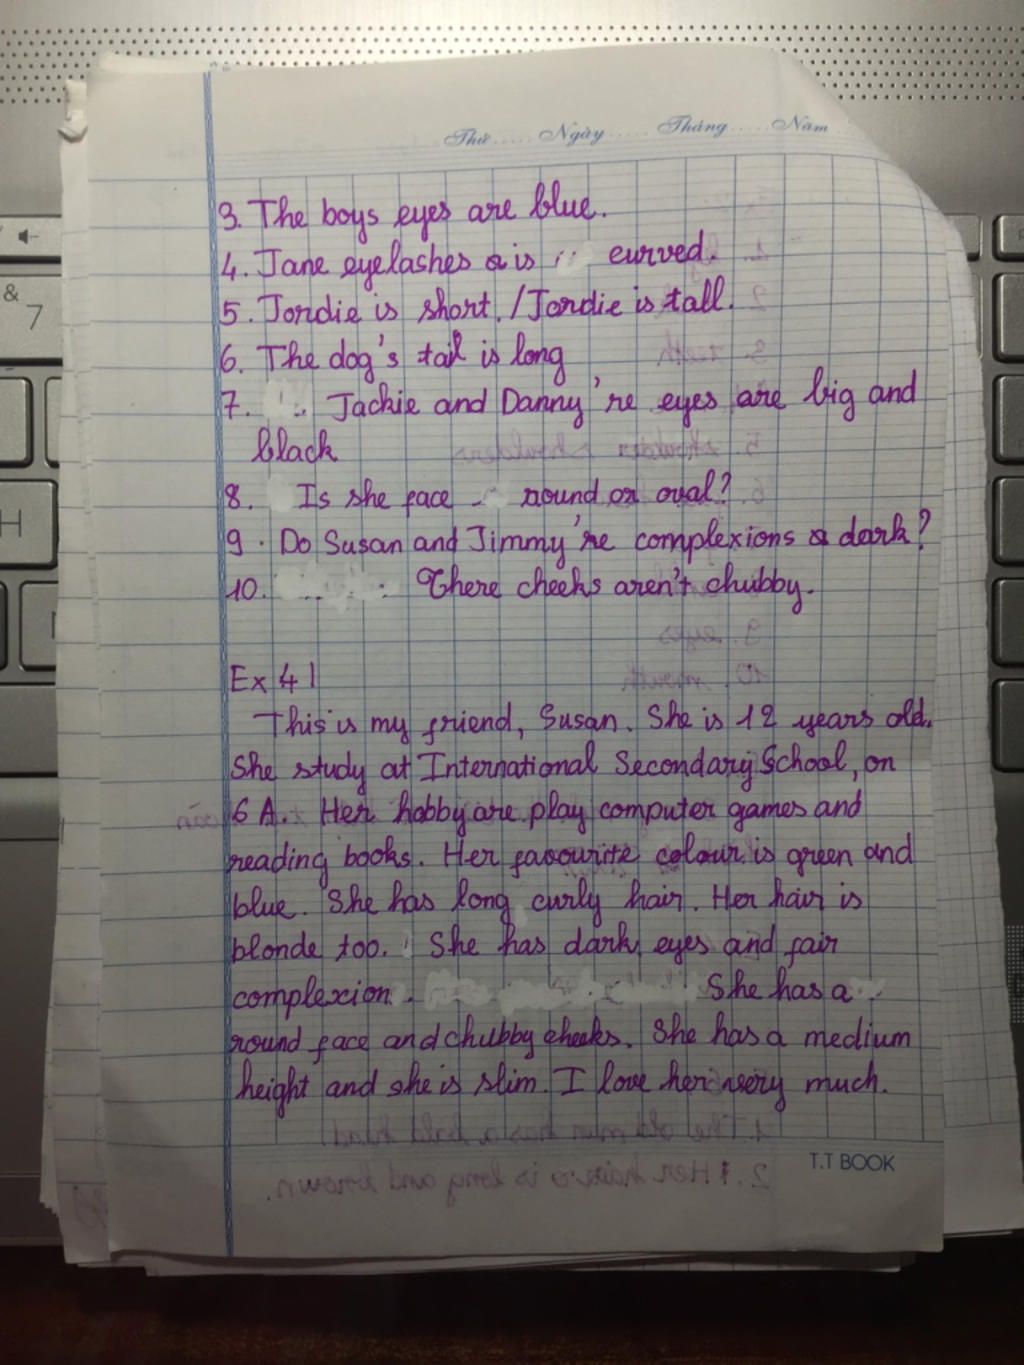 Thứ ..... Ngày ..... Tháng ..... Năm
3. The boys eyes are blue.
4. Jane eyelashes is curved.
5. Jordie is short. / Jordie is tall.
6. The dog's tail is long
7. Jackie and Danny're eyes are big and
black
8. Is she face round or oval?
9. Do Susan and Jimmy're complexions dark?
10. There cheeks aren't chubby.
Ex 4
This is my friend, Susan. She is 12 years old.
She study at International Secondary School, on
6A. Her hobby are play computer games and
reading books. Her favourite colour is green and
blue. She has long, curly hair. Her hair is
blonde too. She has dark eyes and fair
complexion. She has a
round face and chubby cheeks. She has a medium
height and she is slim. I love her very much.
T.T BOOK
&
7
H